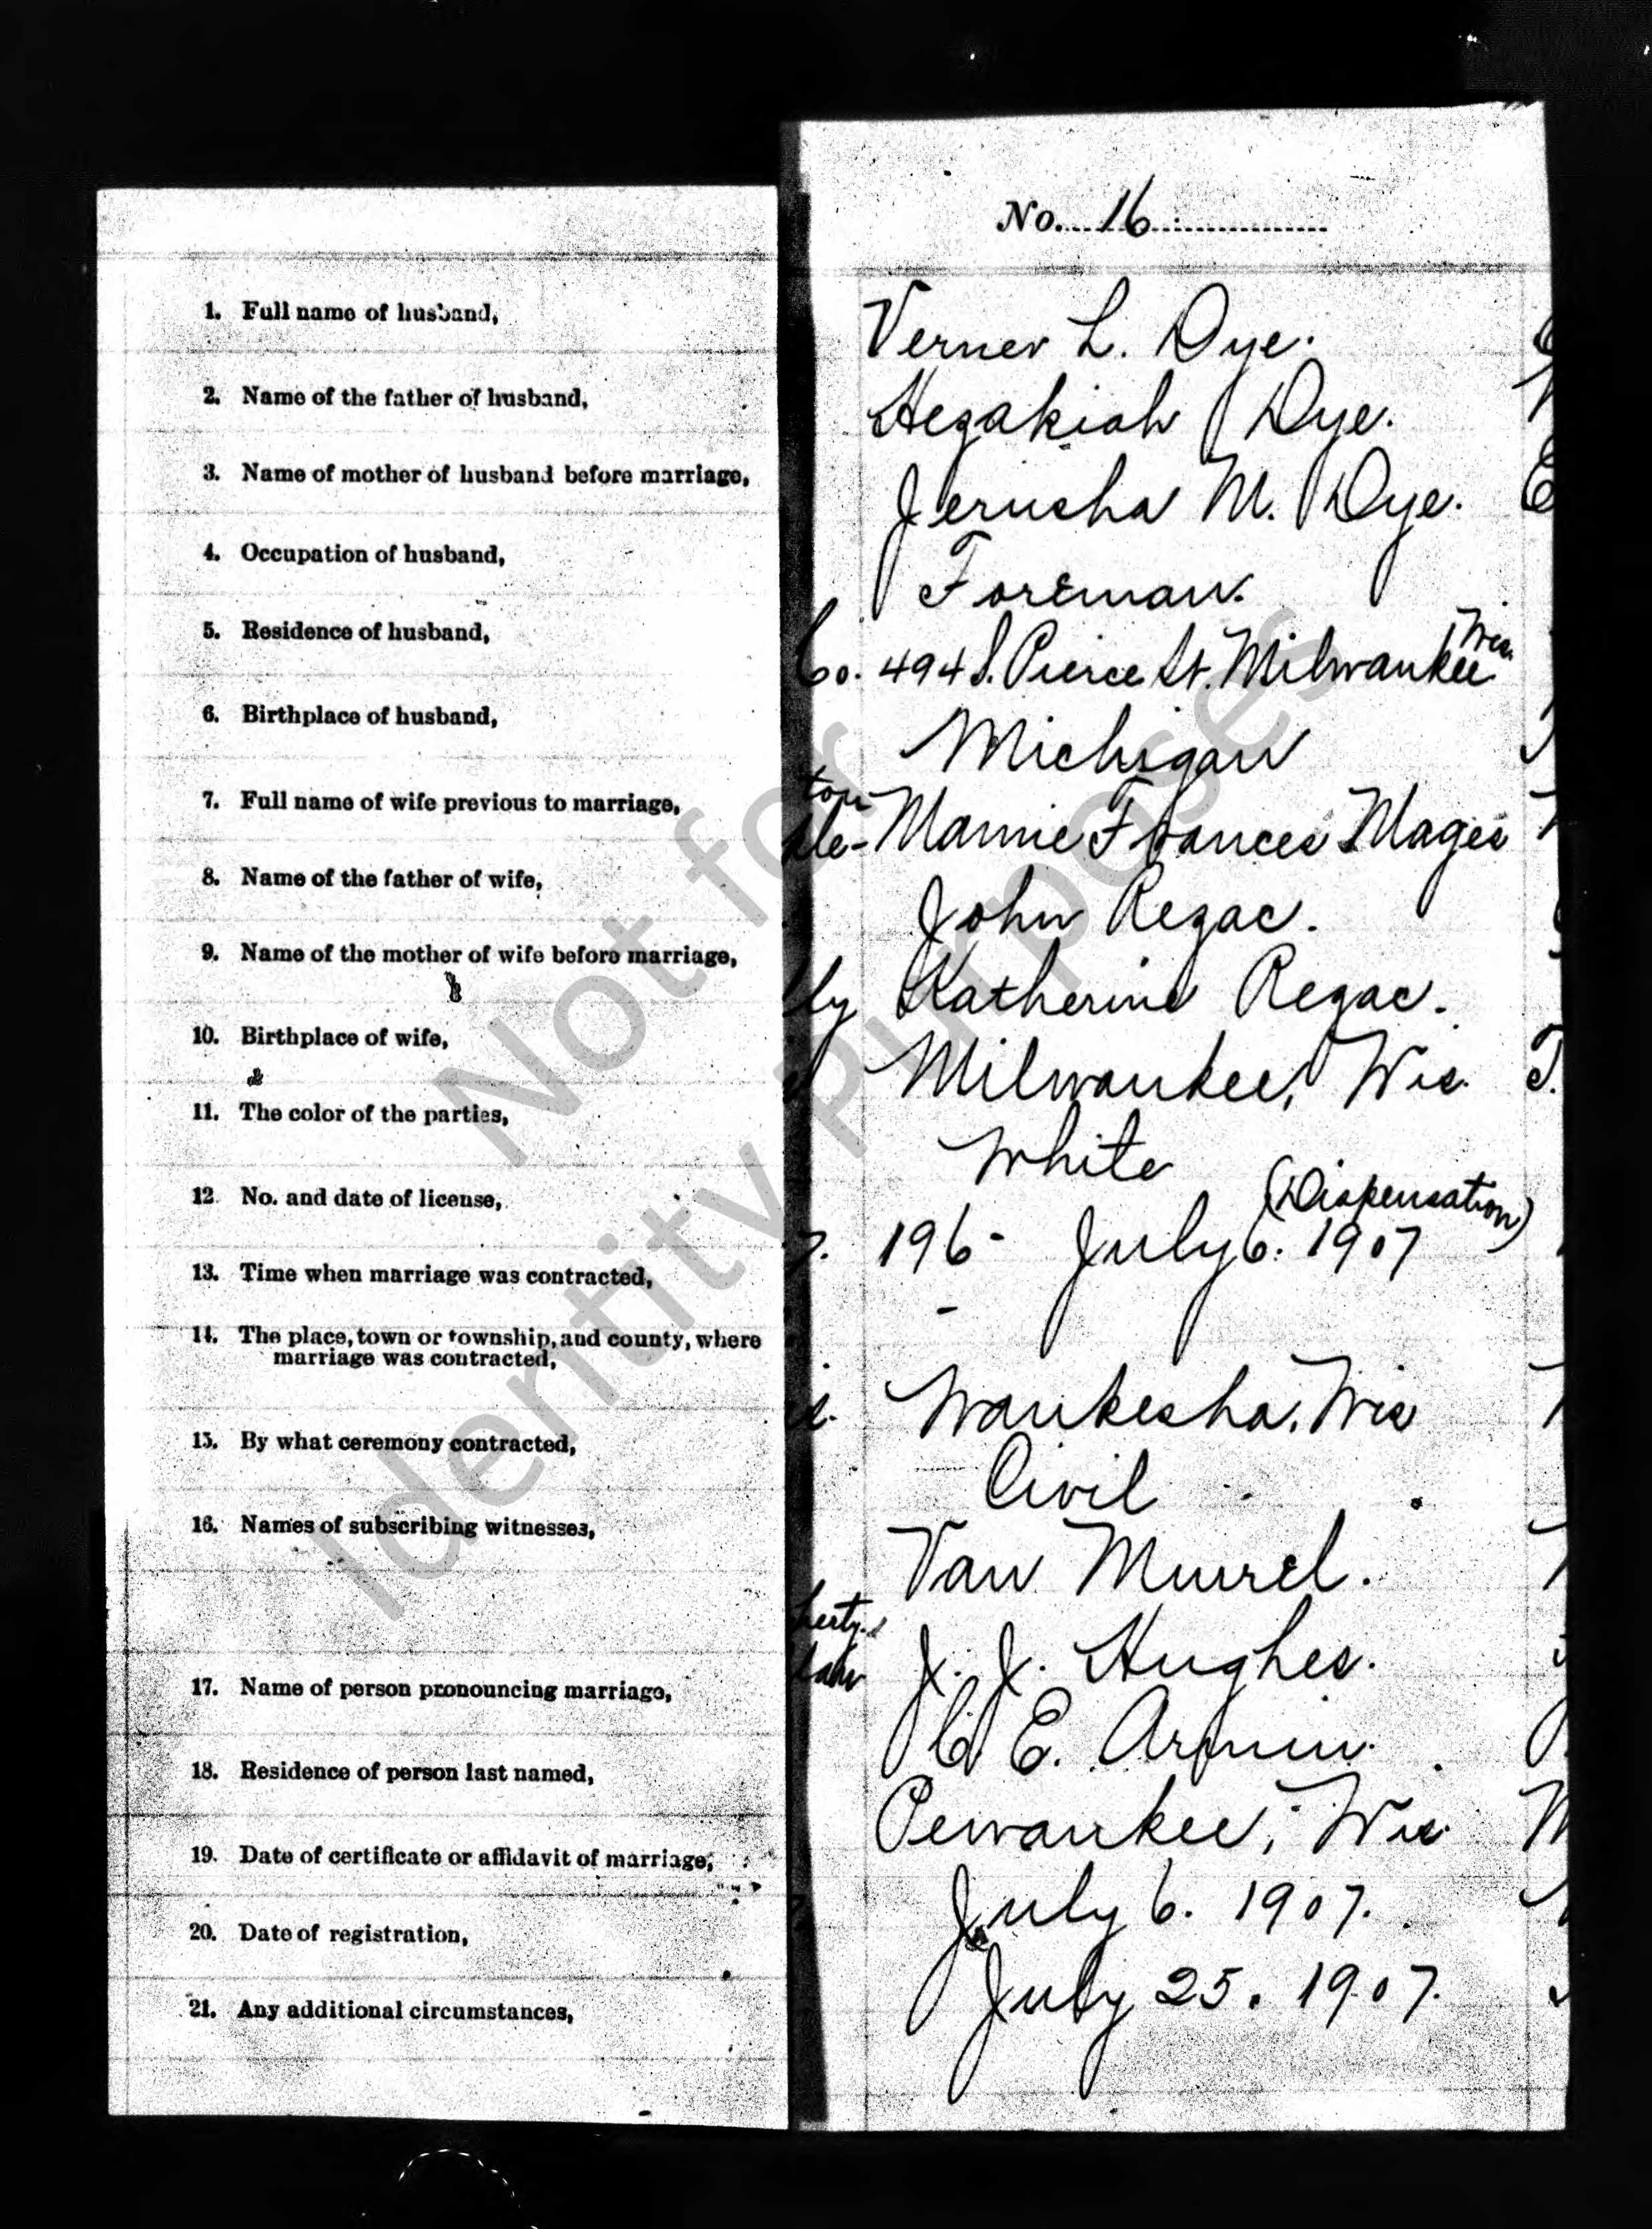 No. 16
1. Full name of husband,
Verner L. Dye.
2. Name of the father of husband,
Hezakiah Dye.
3. Name of mother of husband before marriage,
Jerusha M. Dye.
4. Occupation of husband,
Foreman.
5. Residence of husband,
Co. 494 S. Pierce St. Milwaukee Wis.
6. Birthplace of husband,
Michigan
7. Full name of wife previous to marriage,
Mamie Frances Mages
8. Name of the father of wife,
John Rezac.
9. Name of the mother of wife before marriage,
ly Katherine Rezac.
10. Birthplace of wife,
Milwaukee, Wis.
11. The color of the parties,
White
12. No. and date of license,
(Dispensation)
7. 196- July 6. 1907
13. Time when marriage was contracted,
-
14. The place, town or township, and county, where
marriage was contracted,
Waukesha, Wis
15. By what ceremony contracted,
Civil
16. Names of subscribing witnesses,
Van Murrel.
J. J. Hughes.
17. Name of person pronouncing marriage,
C. E. Armin.
18. Residence of person last named,
Pewaukee, Wis
19. Date of certificate or affidavit of marriage,
July 6. 1907.
20. Date of registration,
July 25. 1907.
21. Any additional circumstances,
Not for
Identity Purposes